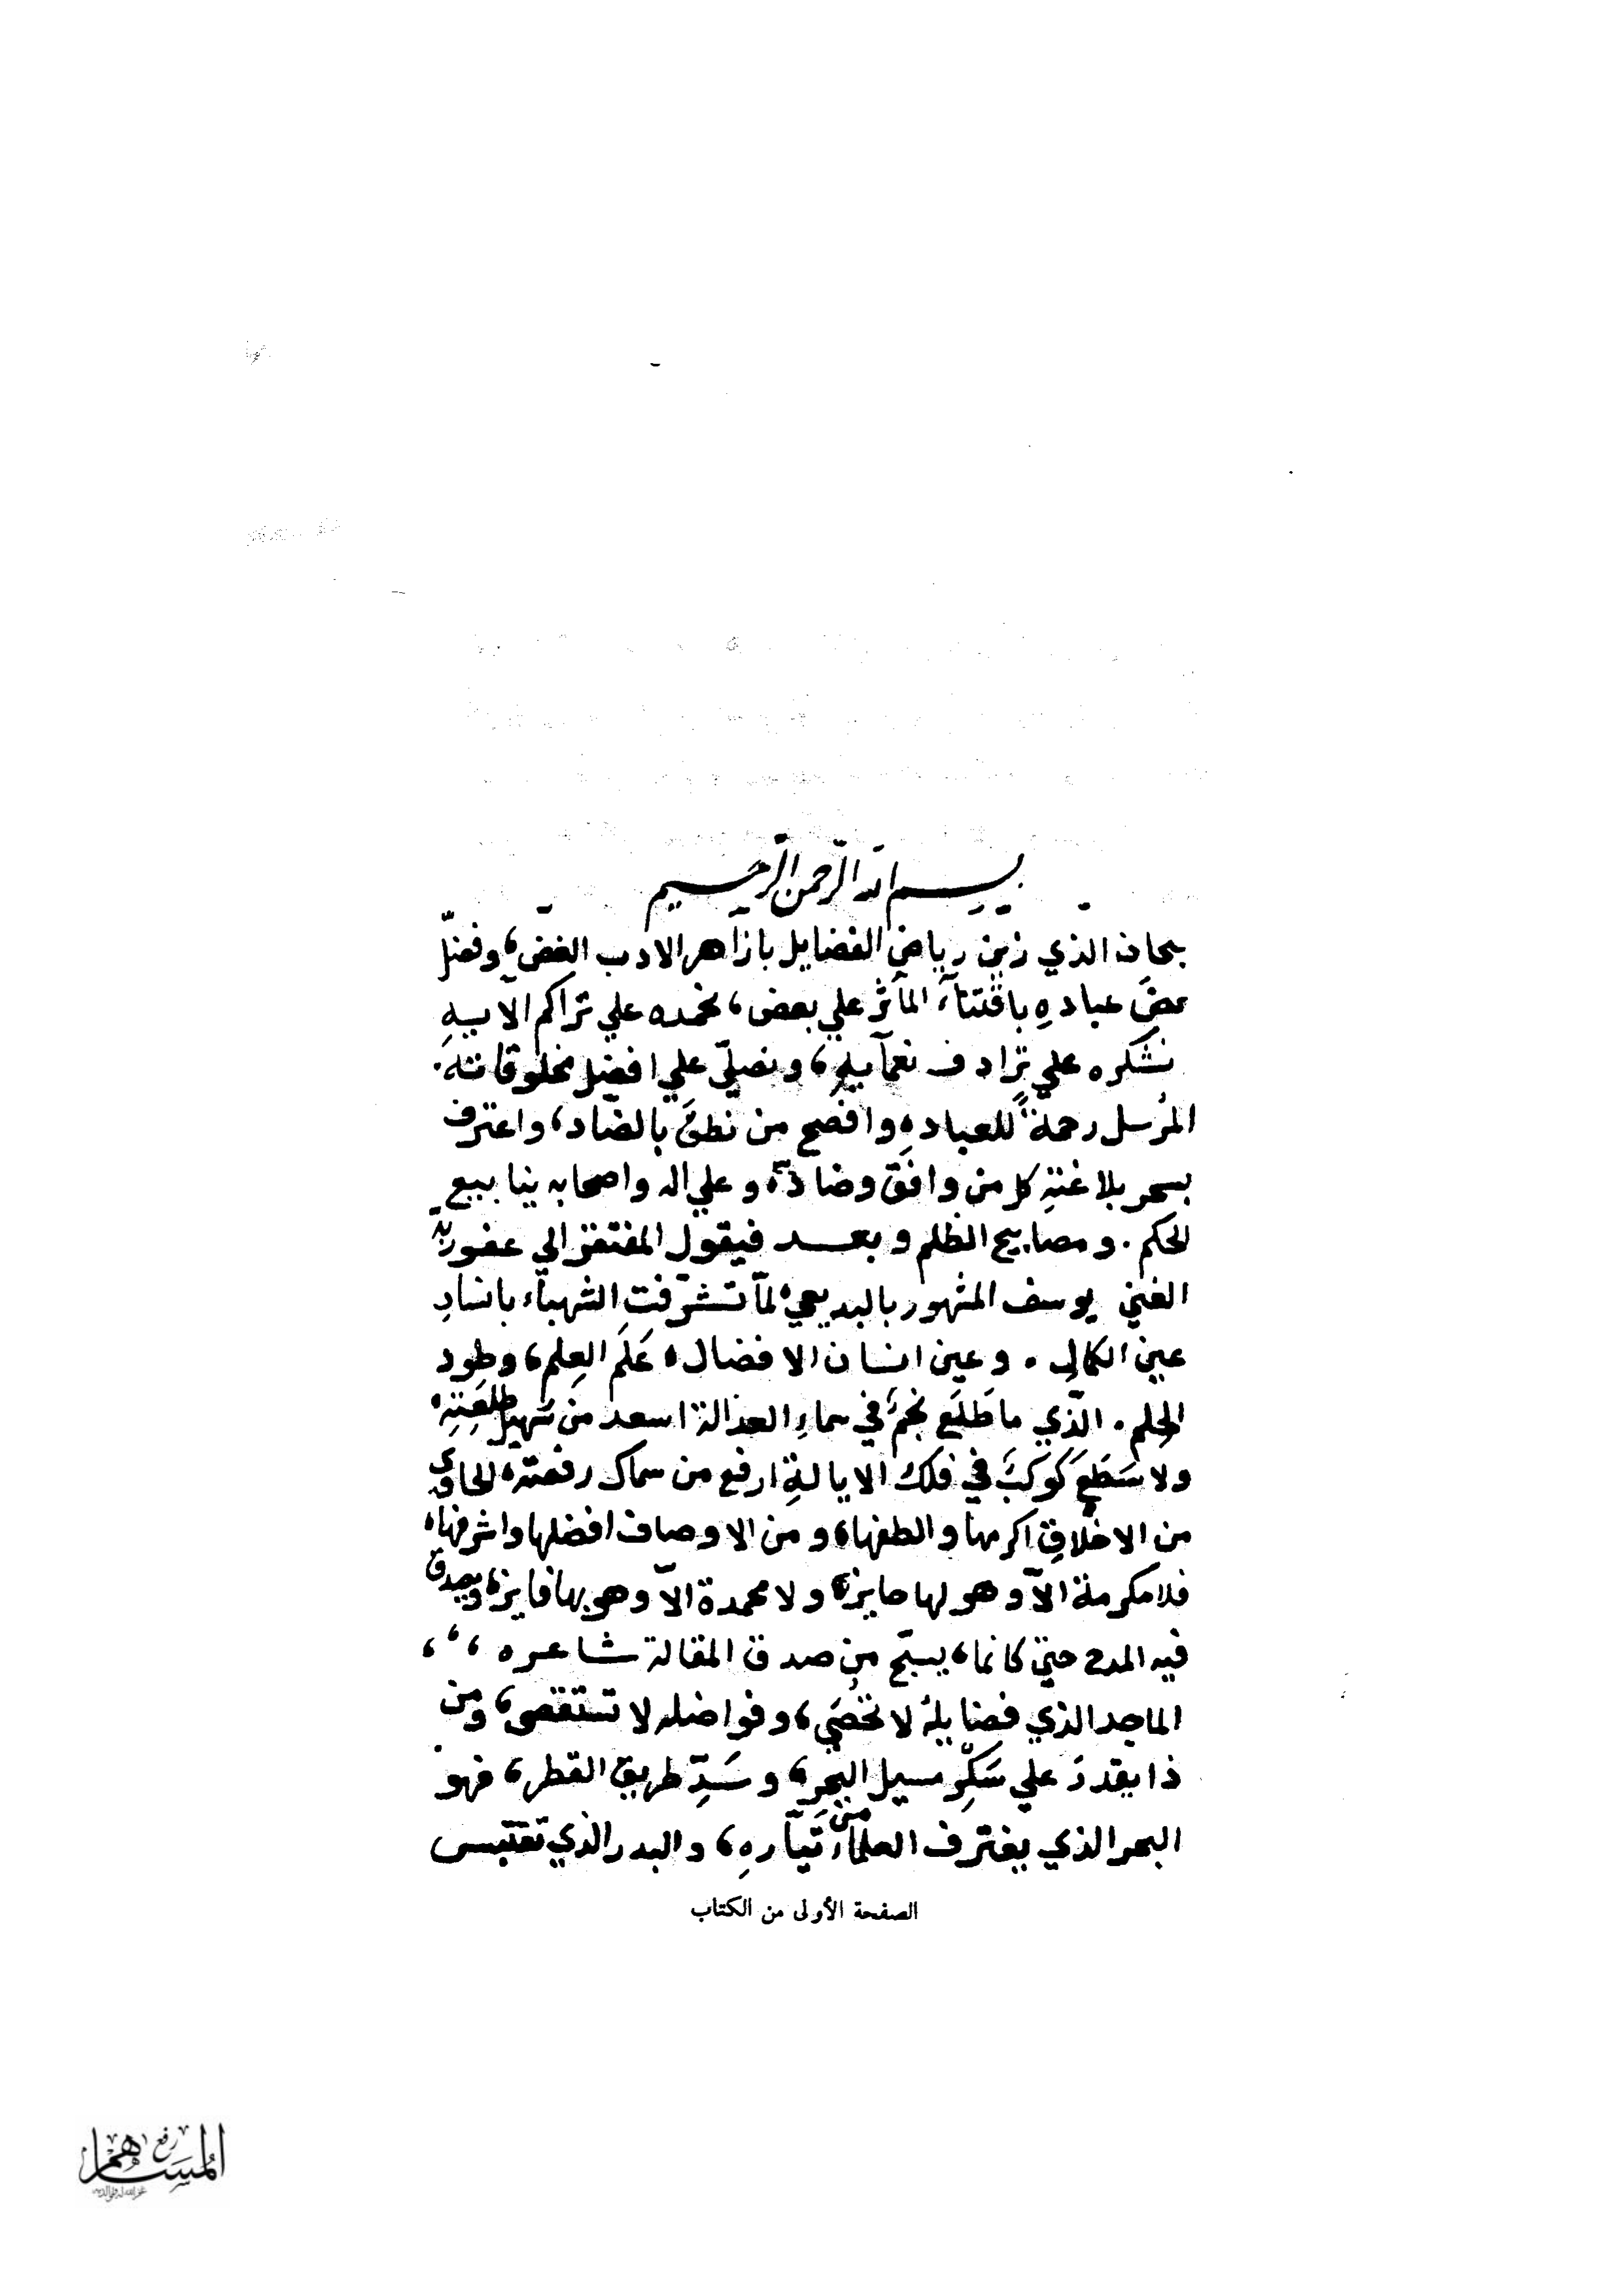 بسم الله الرحمن الرحيم
سبحان الذي زين رياض الفضايل بازاهر الادب الغض، وفضّل
بعضَ عبادهِ باقتنآءَ المآثر علي بعض، نحمده علي تراكم الآييهِ
نشكره علي تَرادف نعمآييهِ، ونصلّي علي افضل مخلوقاته.
المُرسل رحمةً للعباده وافصح من نطقَ بالضاد، واعترف
بسحر بلاغتهِ كل من وافق وضادّه، وعلي اله واصحابه ينابيع
الحكم. ومصابيح الظلم وبعــد فيقول المفتقر الي عفو ربه
الغني يوسف المشهور بالبديعي، لمّا تشرّفتِ الشهباء بانسانِ
عين الكمالِ. وعين انسان الافضال، عَلَم العِلم، وطود
الحِلم. الّذي ما طَلَع نجمٌ في سماءِ العدالة اسعد من سُهيل طلعَتهِ،
ولا سَطَعَ كَوكَبٌ في فلك الايالةِ ارفع من سماك رفعته، الحاوي
من الاخلاقِ اكرمها والطفها، ومن الاوصاف افضلها واشرفها،
فلا مكرمة الاّ وهو لها حايز، ولا محمدة الاّ وهو بها فايز، ويصدق
فيه المدح حتي كانما، يسبّح من صدق المقالة شاعره ،،،
الماجد الذي فضايلهُ لا تحُصَي، وفواضله لا تستقصي، ومن
ذا يقدرُ علي سَكْرِ مسيل البحرِ، وسَدِّ طريق القطر، فهو
البحر الذي يغترف العلمآء من تيآرهِ، والبدر الذي تقتبس
الصفحة الأولى من الكتاب
رفع
المساهم
غفر الله له ولوالديه